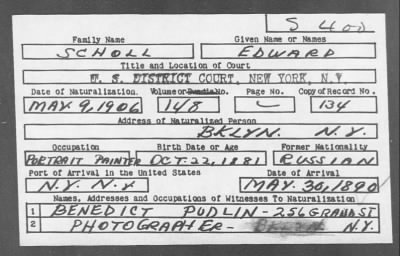 S 400
Family Name Given Name or Names
SCHOLL EDWARD
Title and Location of Court
U. S. DISTRICT COURT, NEW YORK, N.Y.
Date of Naturalization. Volume or Bundle No. Page No. Copy of Record No.
MAY 9, 1906 148 134
Address of Naturalized Person
BKLYN. N.Y.
Occupation Birth Date or Age Former Nationality
PORTRAIT PAINTER OCT. 22, 1881 RUSSIAN
Port of Arrival in the United States Date of Arrival
N.Y. N.Y MAY. 30, 1890
Names, Addresses and Occupations of Witnesses To Naturalization
1 BENEDICT PUDLIN - 256 GRAND ST
2 PHOTOGRAPHER - BKLYN N.Y.